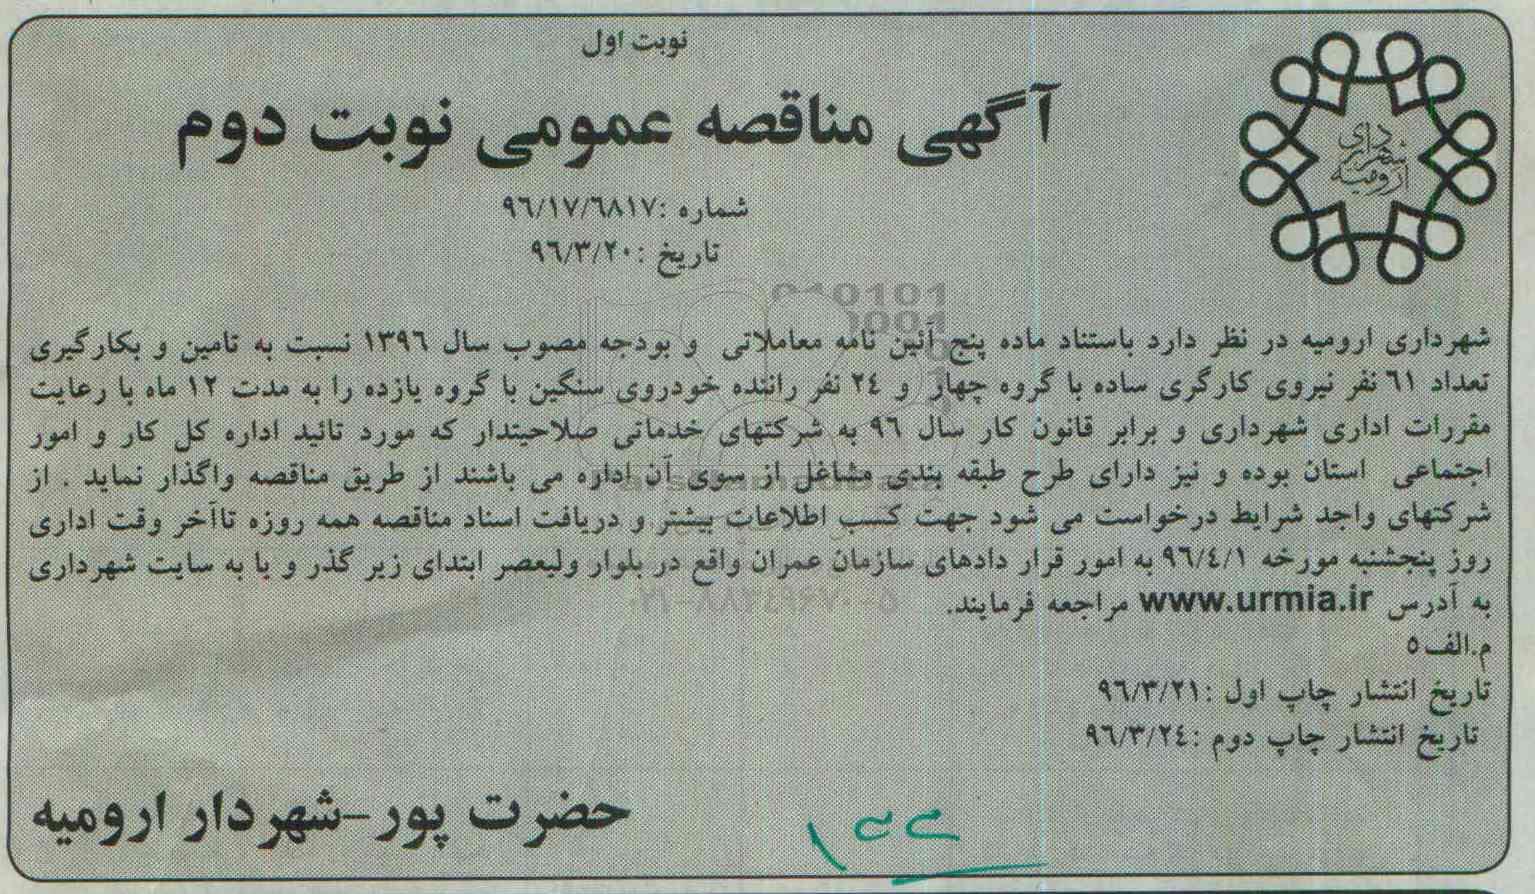 نوبت اول
آگهی مناقصه عمومی نوبت دوم
شهرداری ارومیه
شماره :۹۶/۱۷/۶۸۱۷
تاریخ :۹۶/۳/۲۰
شهرداری ارومیه در نظر دارد باستناد ماده پنج آئین نامه معاملاتی و بودجه مصوب سال ۱۳۹۶ نسبت به تامین و بکارگیری
تعداد ۶۱ نفر نیروی کارگری ساده با گروه چهار و ۲۴ نفر راننده خودروی سنگین با گروه یازده را به مدت ۱۲ ماه با رعایت
مقررات اداری شهرداری و برابر قانون کار سال ۹۶ به شرکتهای خدماتی صلاحیتدار که مورد تائید اداره کل کار و امور
اجتماعی استان بوده و نیز دارای طرح طبقه بندی مشاغل از سوی آن اداره می باشند از طریق مناقصه واگذار نماید . از
شرکتهای واجد شرایط درخواست می شود جهت کسب اطلاعات بیشتر و دریافت اسناد مناقصه همه روزه تاآخر وقت اداری
روز پنجشنبه مورخه ۹۶/۴/۱ به امور قرار دادهای سازمان عمران واقع در بلوار ولیعصر ابتدای زیر گذر و یا به سایت شهرداری
به آدرس www.urmia.ir مراجعه فرمایند.
م.الف۵
تاریخ انتشار چاپ اول :۹۶/۳/۲۱
تاریخ انتشار چاپ دوم :۹۶/۳/۲۴
حضرت پور-شهردار ارومیه